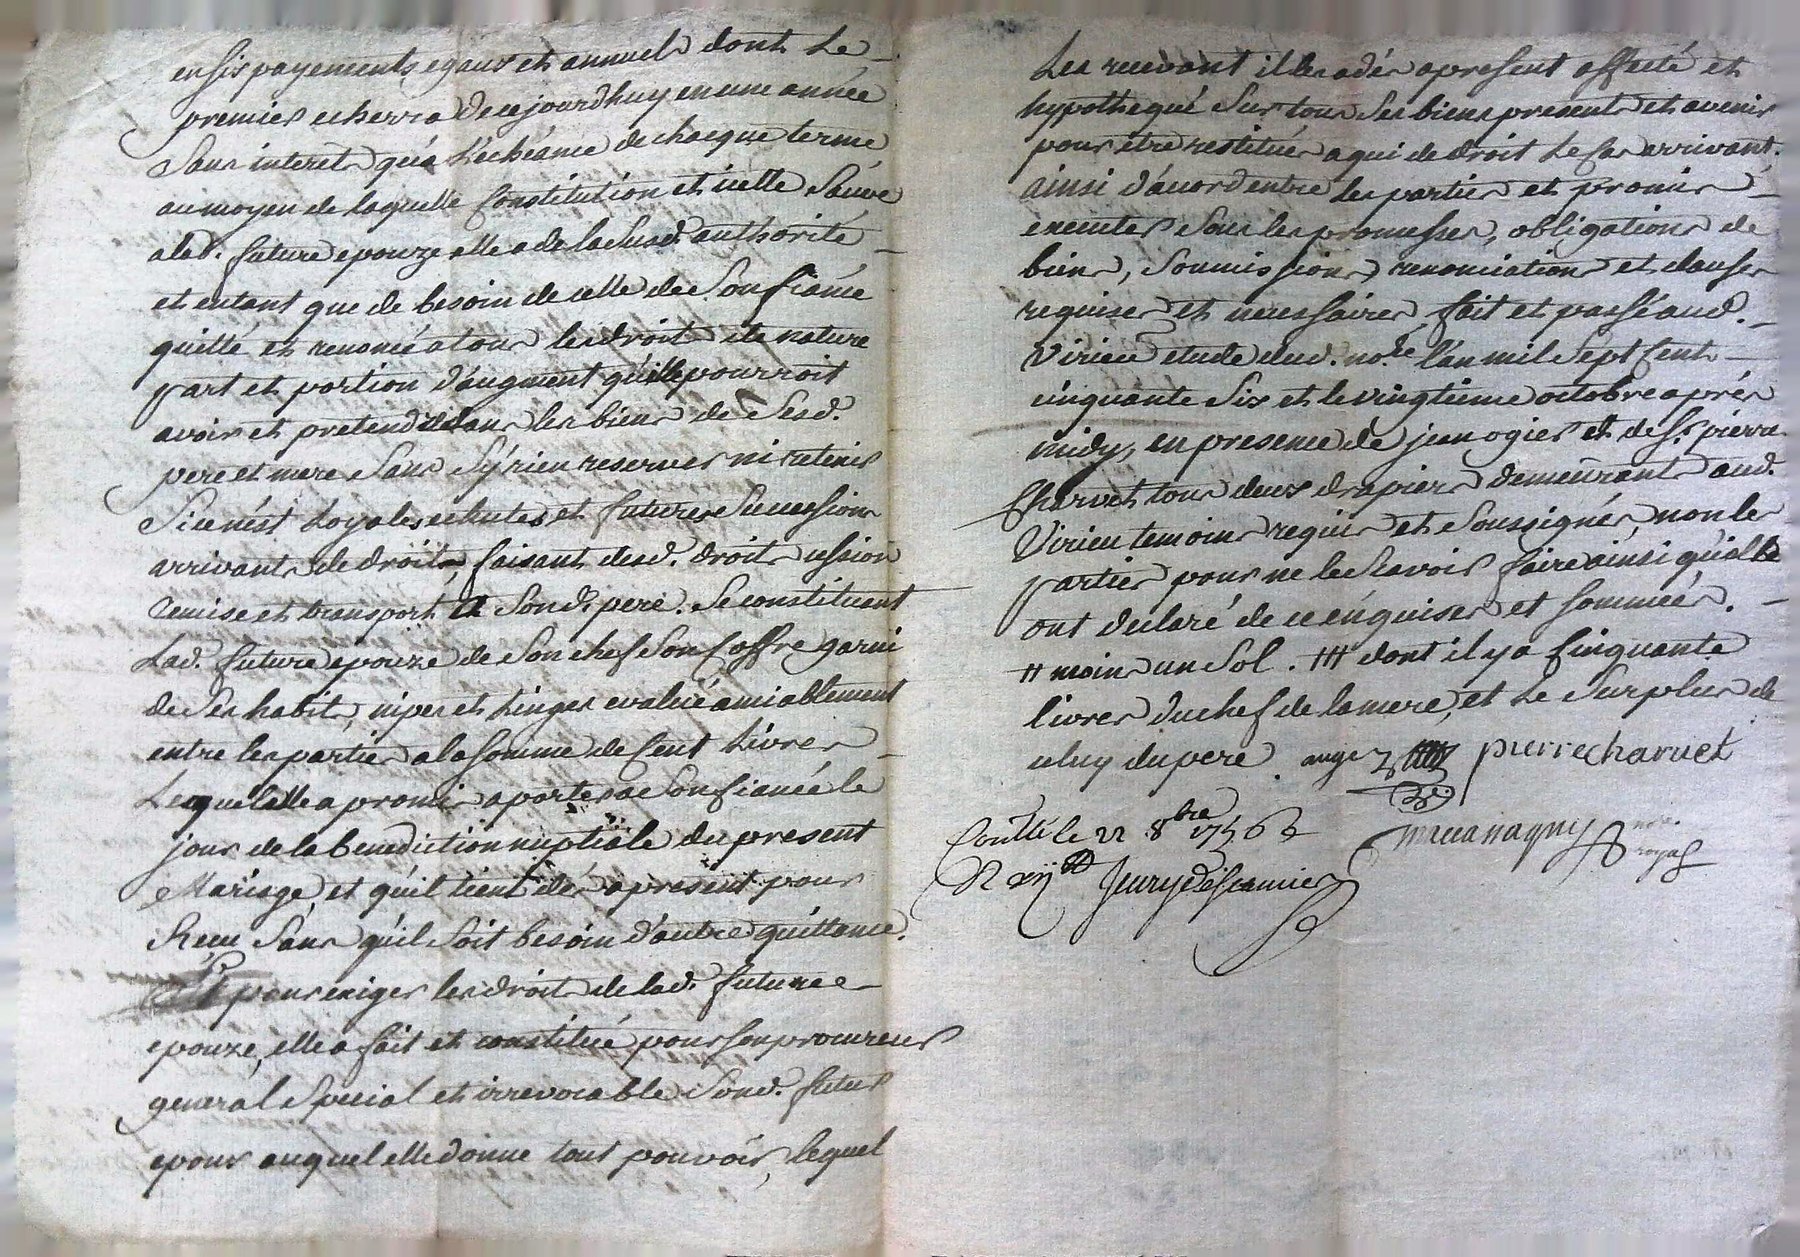 en six payements egaux et annuels dont le
premier echerra de ce jourdhuy en une année
sans interets qu'a l'echéance de chacque terme
au moyen de laquelle constitution et icelle sauve
a lad. future epouze elle a de la susd. authorité
et entant que de besoin de celle de son fiancé
quitté et renoncé a tous les droits de nature
part et portion d'augment qu'elle pourroit
avoir et pretendre dans les biens de sesd.
pere et mere sans s'y rien reserver ni retenir
si ce n'est loyales echutes et futures successions
arrivants de droits, faisant desd. droits cession
remise et transport a sond. pere. se constituant
lad. future epouze de son chef son coffre garni
de ses habits, nipes et linges evalué amiablement
entre les parties a la somme de cent livres
lequel elle a promis aporter a son fiancé le
jour de la benediction nuptiale du present
mariage, et qu'il tient dés apresent pour
reçu sans qu'il soit besoin d'autre quittance.
pour exiger les droits de lad. future
epouze, elle a fait et constitué pour son procureur
general special et irrevocable sond. futur
epoux auquel elle donne tout pouvoir, lequel
les recevant il les a dés apresent affecté et
hypothequé sur tous ses biens presents et avenir
pour être restitués a qui de droit le cas arrivant.
ainsi d'accord entre les parties et promis
executer sous les promesses, obligations de
biens, soumissions, renonciations et clauses
requises et necessaires, fait et passé aud.
Virieu etude dud. nore. l'an mil sept cent
cinquante six et le vingtième octobre aprés
midy, en presence de jean ogier et de sr. pierre
Charvet tous deux drapiers demeurants aud.
Virieu temoins requis et soussignés, non les
parties pour ne le sçavoir faire ainsi qu'elles
ont declaré de ce enquises et sommées.
# moins un sol. ## dont il y a cinquante
livres du chef de la mere, et le surplus de
celuy du pere. pierre charvet
Contlé. le 22 8bre 1756
not.
royal